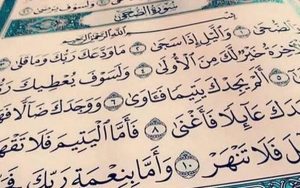 سُورَةُ الضُّحَىٰ
بِسْمِ اللَّهِ الرَّحْمَٰنِ الرَّحِيمِ
الضُّحَىٰ ١ وَالَّيْلِ إِذَا سَجَىٰ ٢ مَا وَدَّعَكَ رَبُّكَ وَمَا قَلَىٰ
خِرَةُ خَيْرٌ لَّكَ مِنَ الْأُولَىٰ ٤ وَلَسَوْفَ يُعْطِيكَ رَبُّ
٥ أَلَمْ يَجِدْكَ يَتِيمًا فَـَٔاوَىٰ ٦ وَوَجَدَكَ ضَآلًّا فَهَ
دَكَ عَآئِلًا فَأَغْنَىٰ ٨ فَأَمَّا الْيَتِيمَ فَلَا تَقْهَ
لَ فَلَا تَنْهَرْ ١٠ وَأَمَّا بِنِعْمَةِ رَبِّكَ فَ